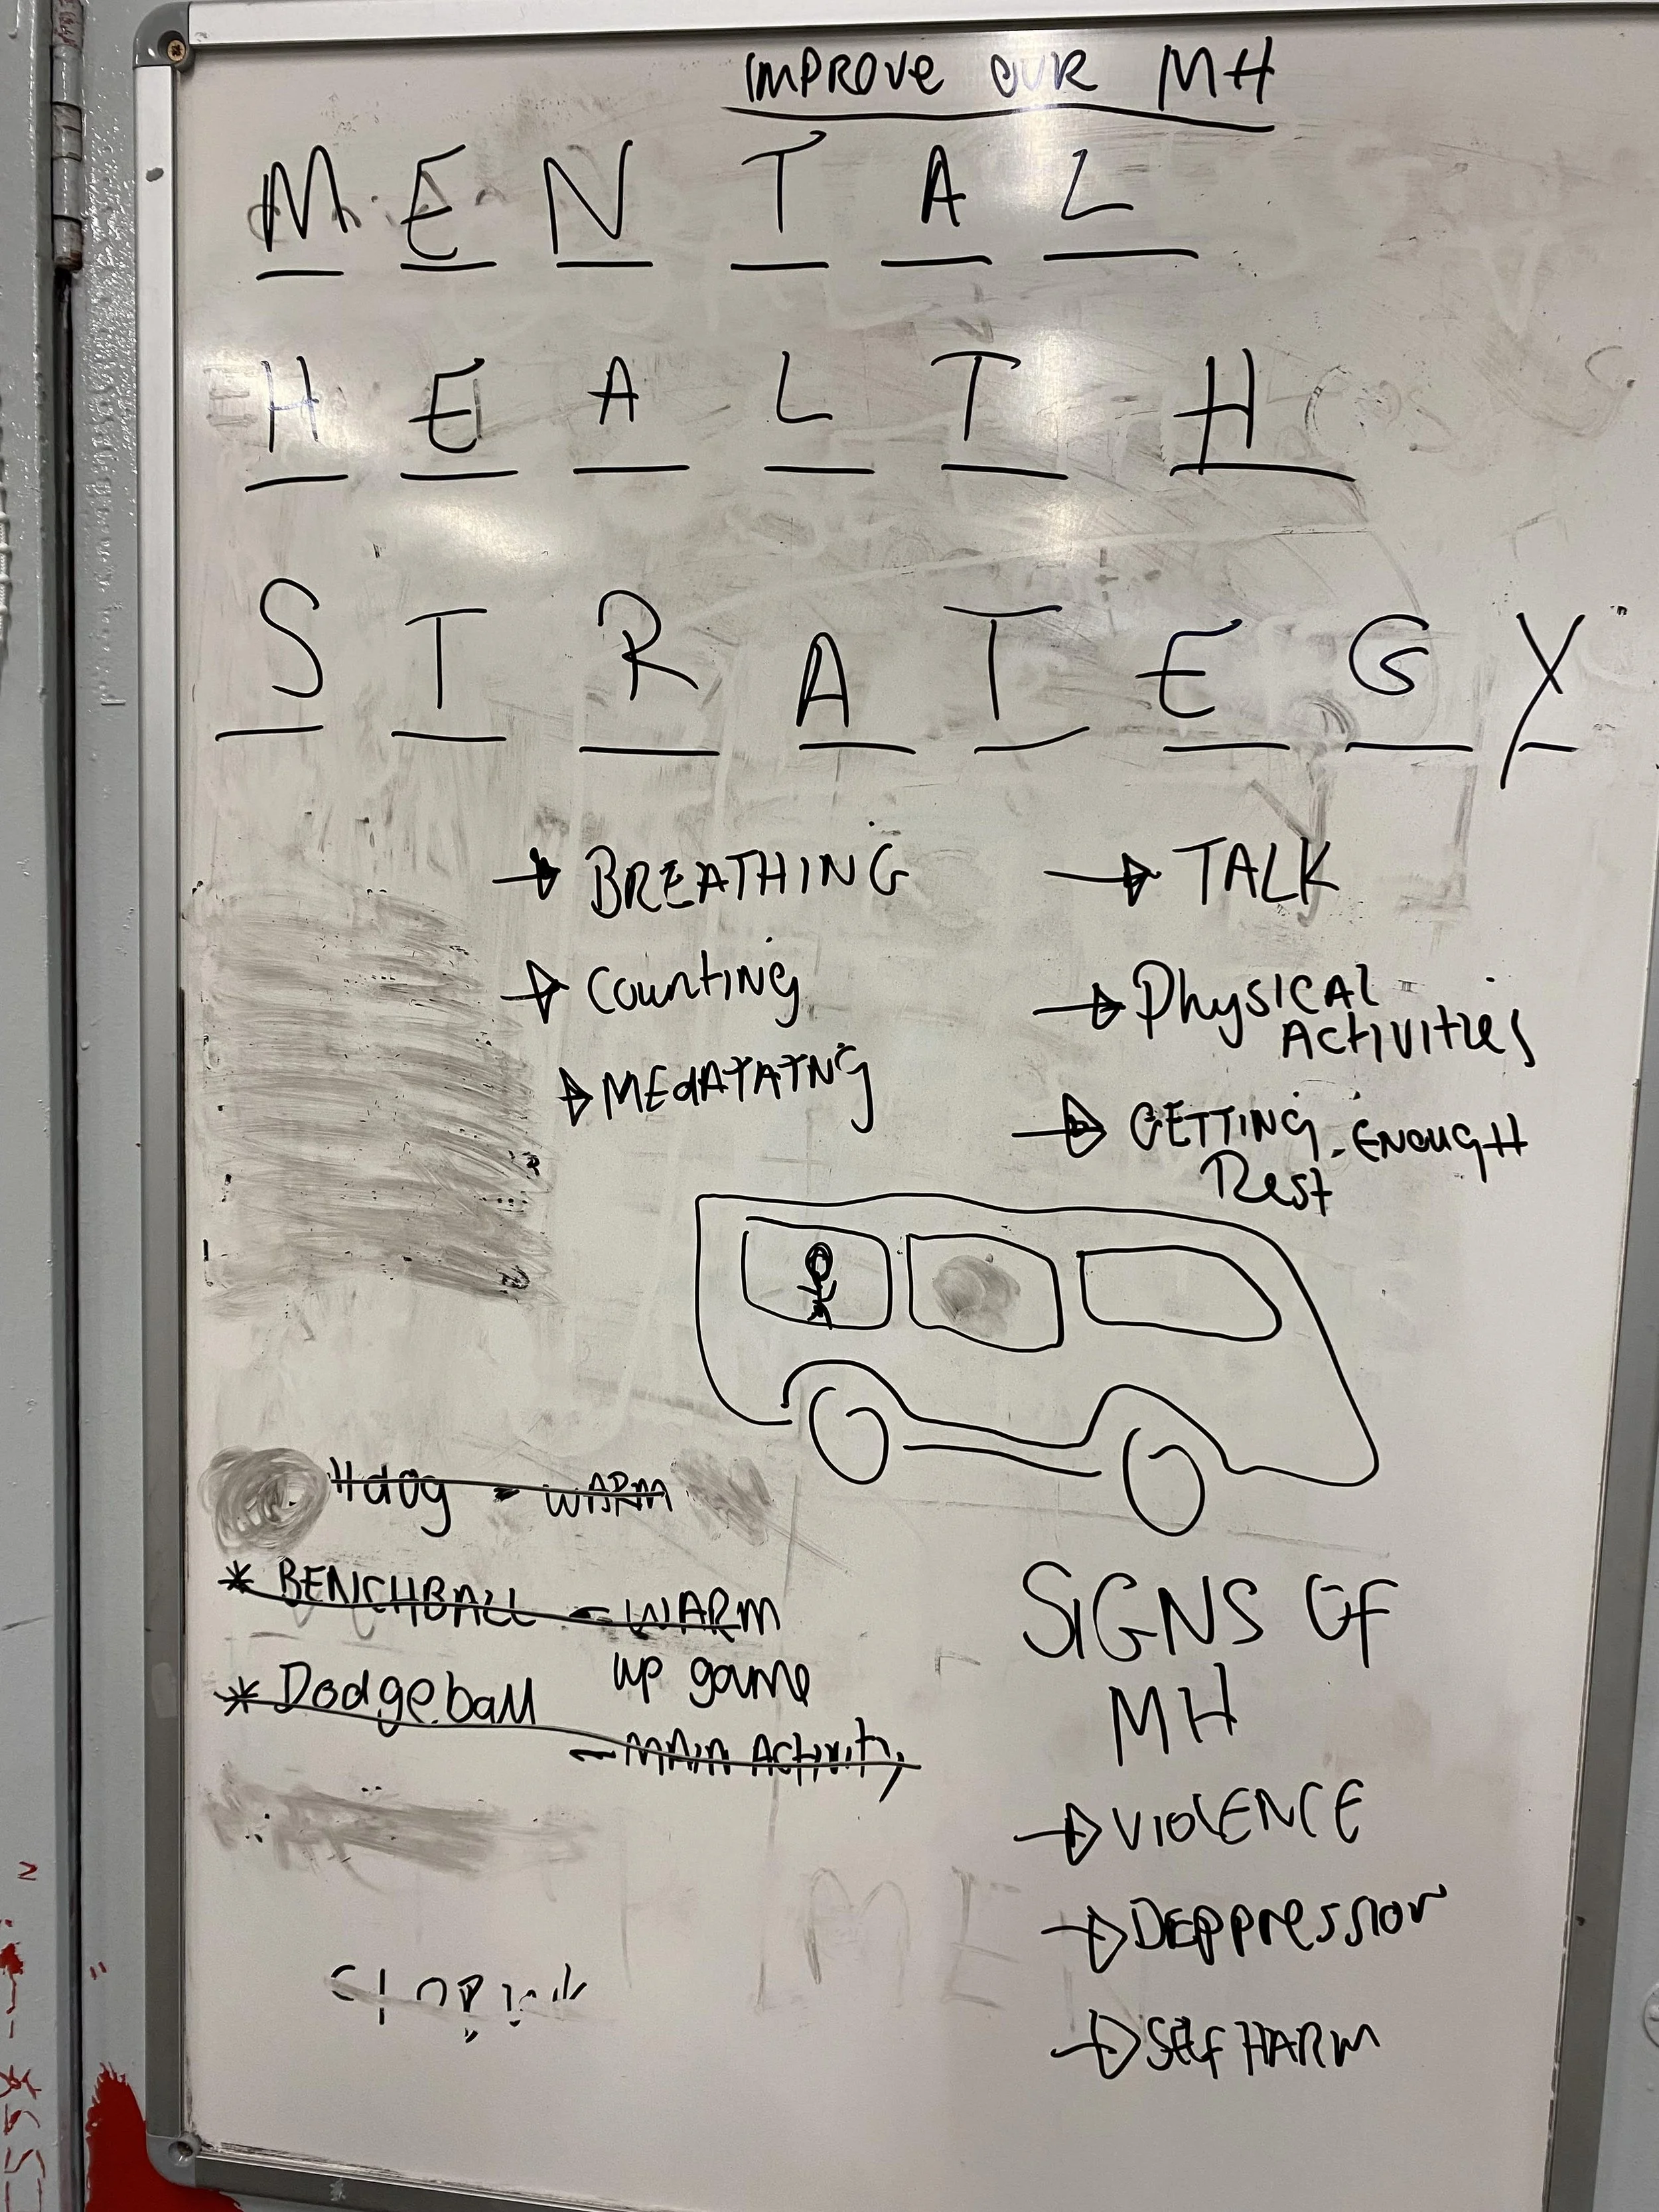 IMPROVE OUR MH
MENTAL
HEALTH
STRATEGY
BREATHING
COUNTING
MEdATATNG
TALK
PhySICAL
ACTIVITIES
GETTING ENOUGH
Rest
WARM
* BENCHBALL - WARM
up game
* Dodgeball
- MAIN Activity
SIGNS OF
MH
VIOLENCE
DEPPRESSION
SElf HARM